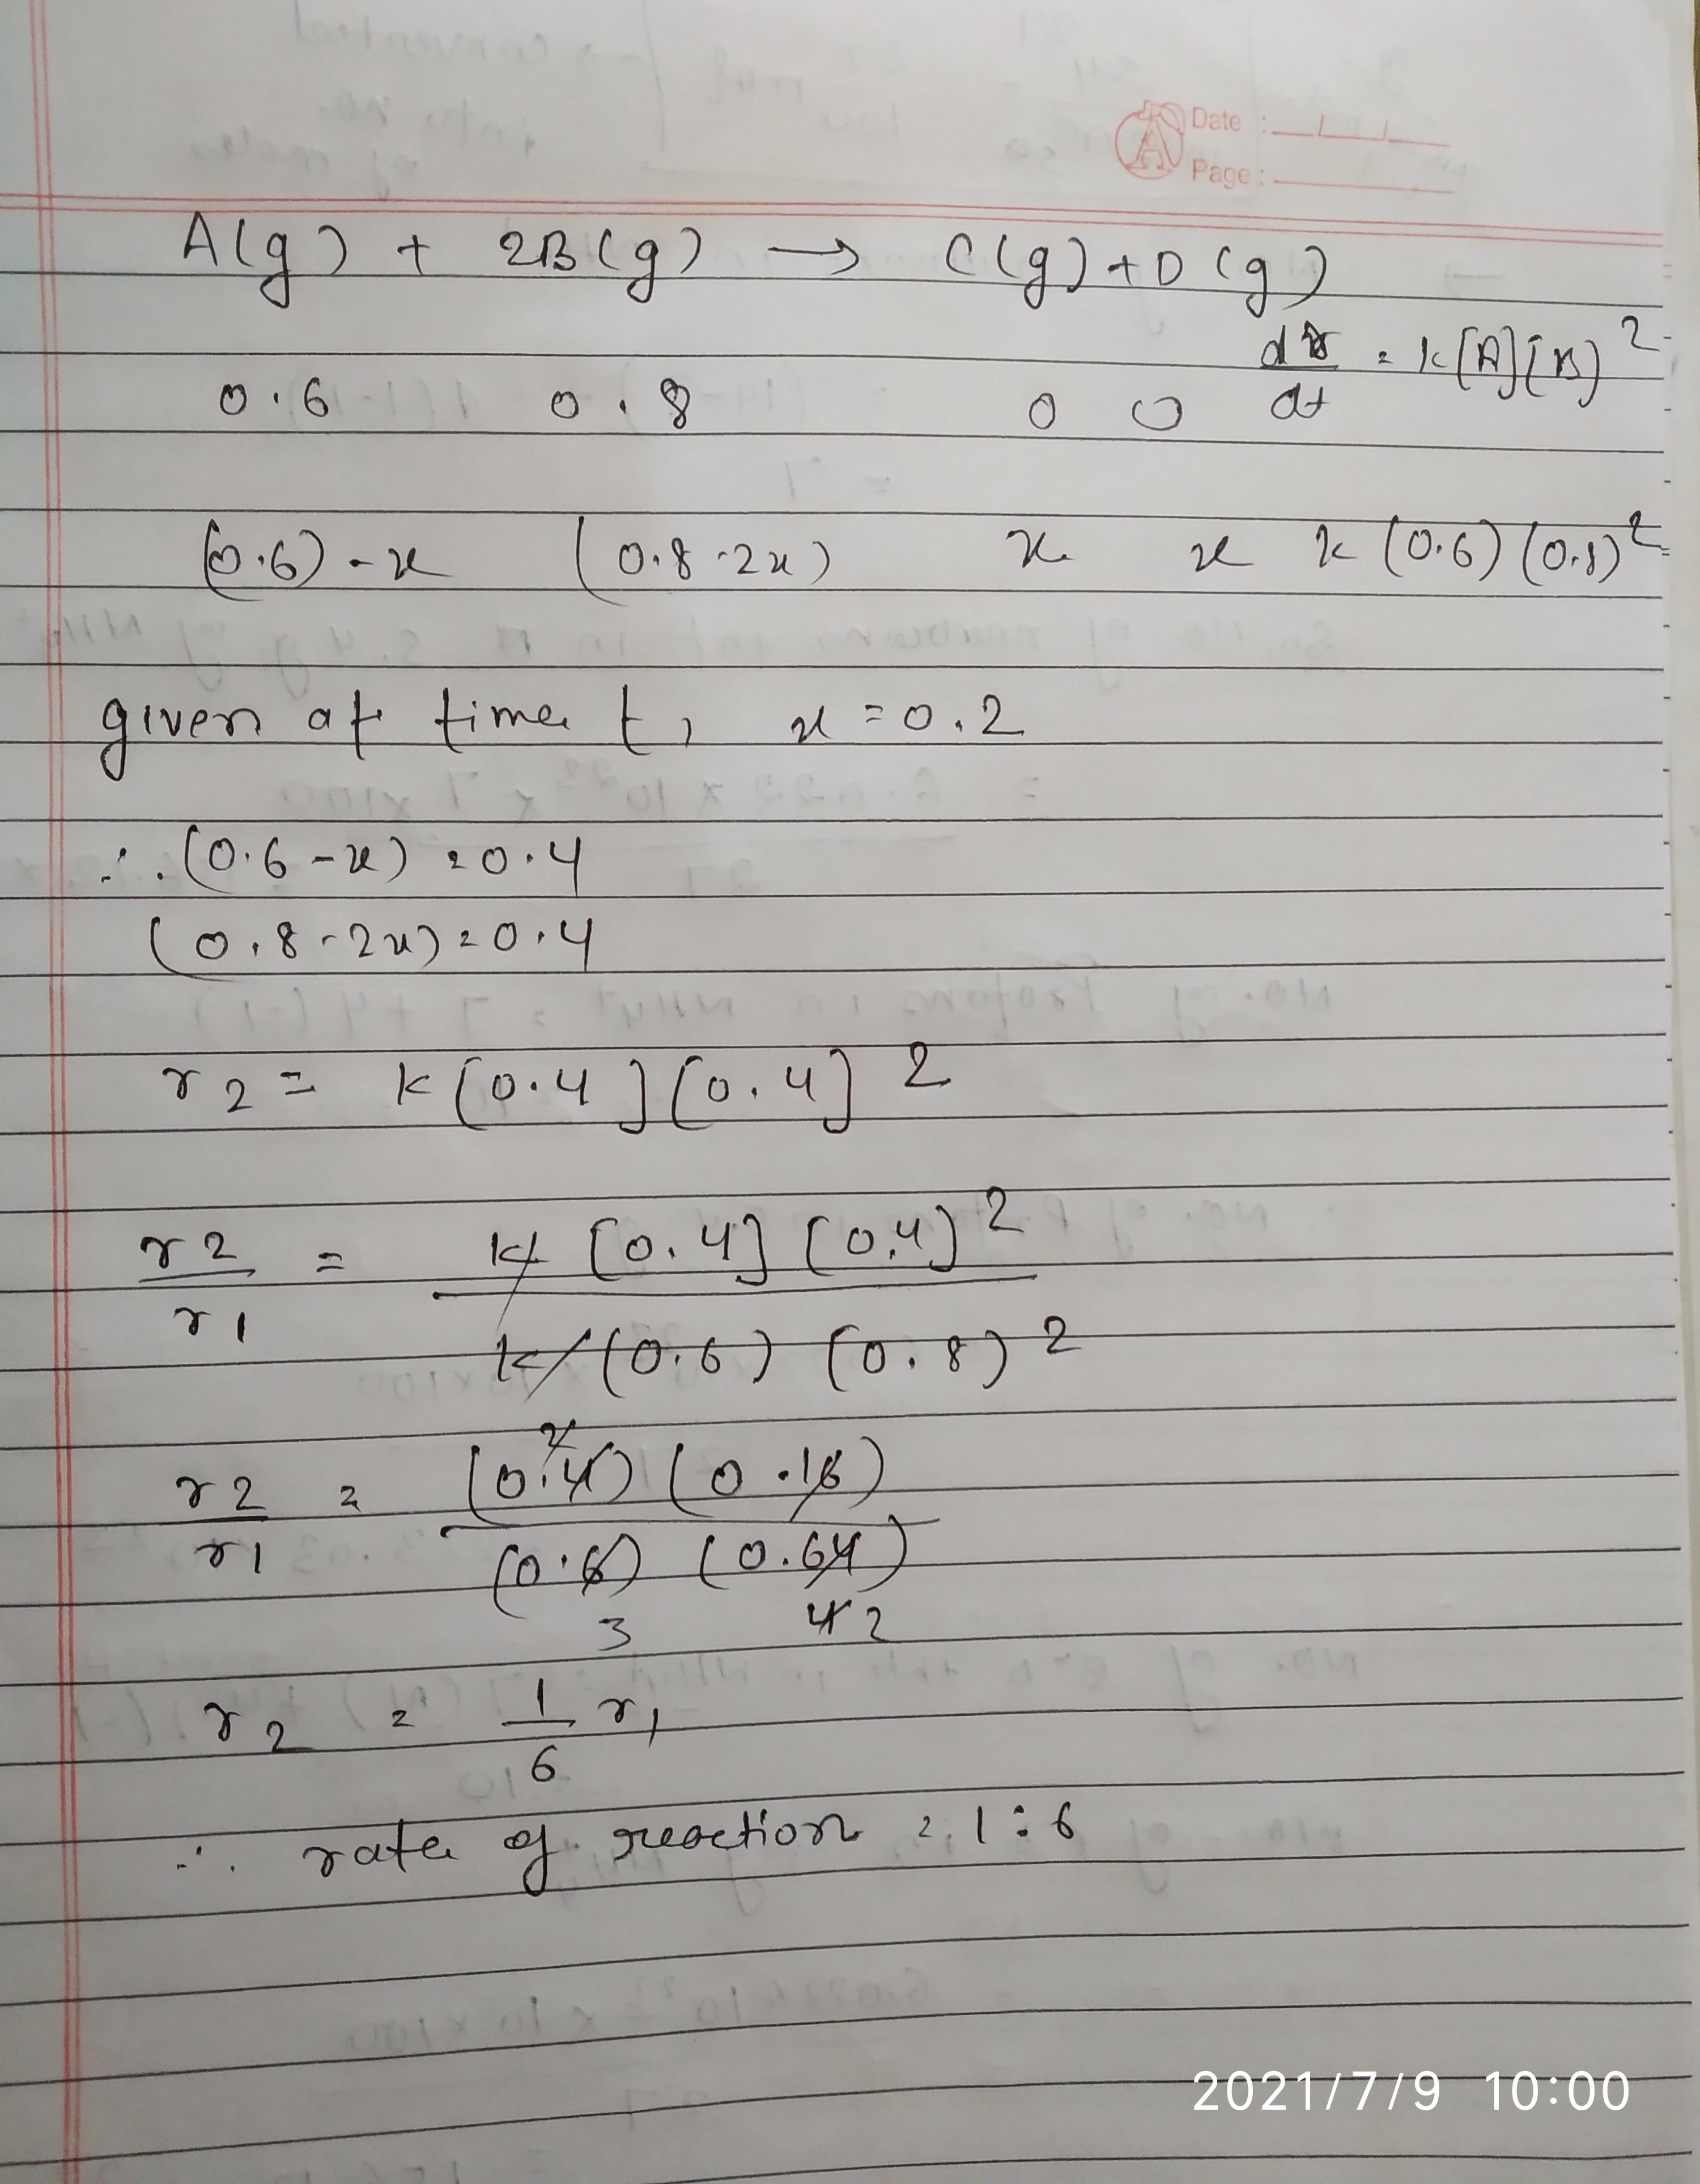 Date : __/__/__
Page :
A(g) + 2B(g) → C(g) + D(g)
dx/dt = k[A][B]²
0.6 0.8 0 0
(0.6)-x (0.8-2x) x x k(0.6)(0.8)²
given at time t, x = 0.2
∴ (0.6-x) = 0.4
(0.8-2x) = 0.4
r2 = k[0.4][0.4]²
r2/r1 = k[0.4][0.4]² / k(0.6)(0.8)²
r2/r1 = (0.4)(0.16) / (0.6)(0.64)
2
3 4 2
r2 = 1/6 r1
∴ rate of reaction = 1:6
2021/7/9 10:00